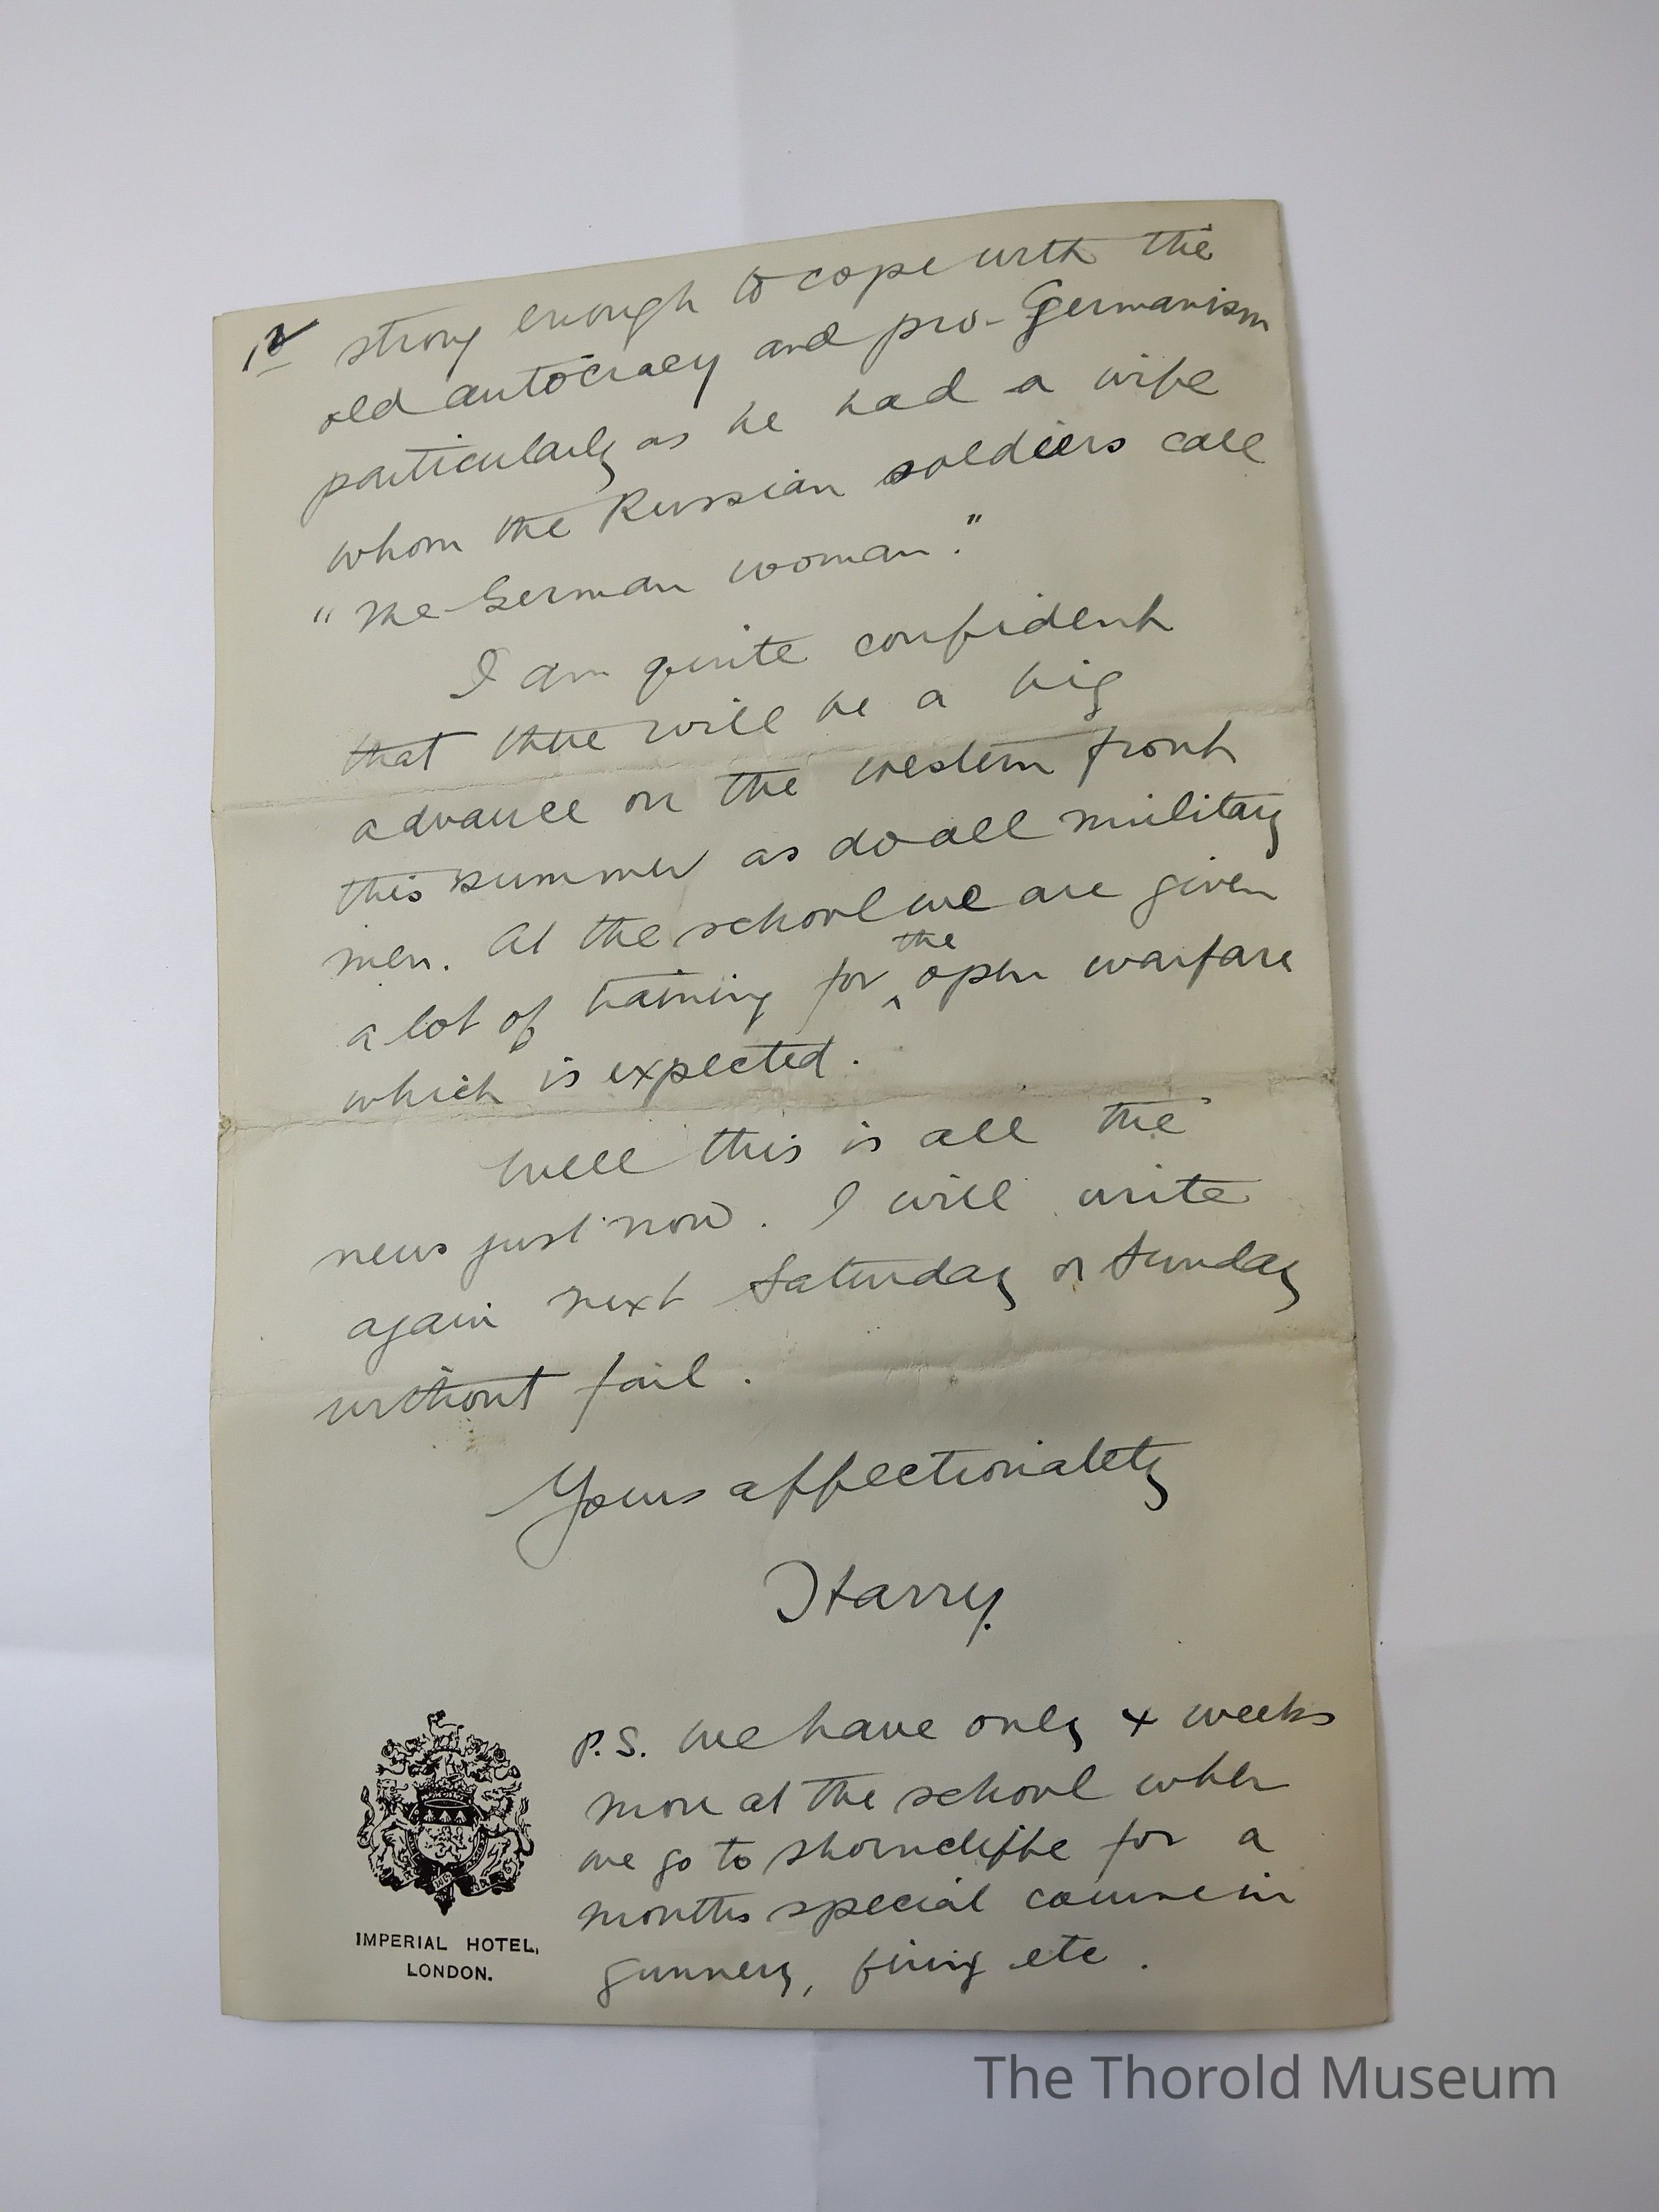 12 strong enough to cope with the
old autocracy and pro-Germanism
particularly as he had a wife
whom the Russian soldiers call
"The German woman."
I am quite confident
that there will be a big
advance on the western front
this summer as do all military
men. At the school we are given
a lot of training for the open warfare
which is expected.
Well this is all the
news just now. I will write
again next Saturday or Sunday
without fail.
Yours affectionately
Harry.
P.S. We have only 4 weeks
more at the school when
we go to Shorncliffe for a
months special course in
gunnery, firing etc.
IMPERIAL HOTEL,
LONDON.
The Thorold Museum